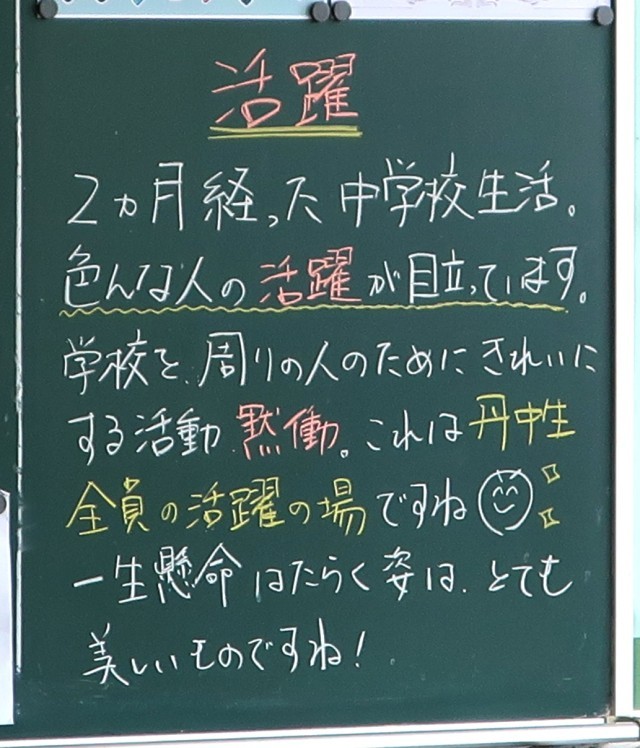 活躍
2ヵ月経った中学校生活。
色んな人の活躍が目立っています。
学校を、周りの人のためにきれいに
する活動、黙働。これは丹中生
全員の活躍の場ですね
一生懸命はたらく姿は、とても
美しいものですね!